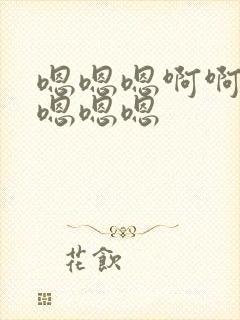 嗯嗯嗯啊啊
嗯嗯嗯
花飲